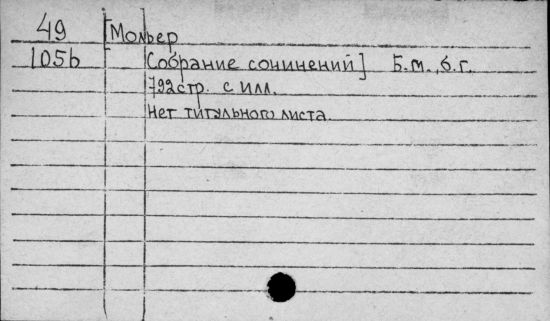 49 [Мольер
105b Собрание сочинений] Б.м., б.г.
792стр. с илл.
Нет титульного листа.